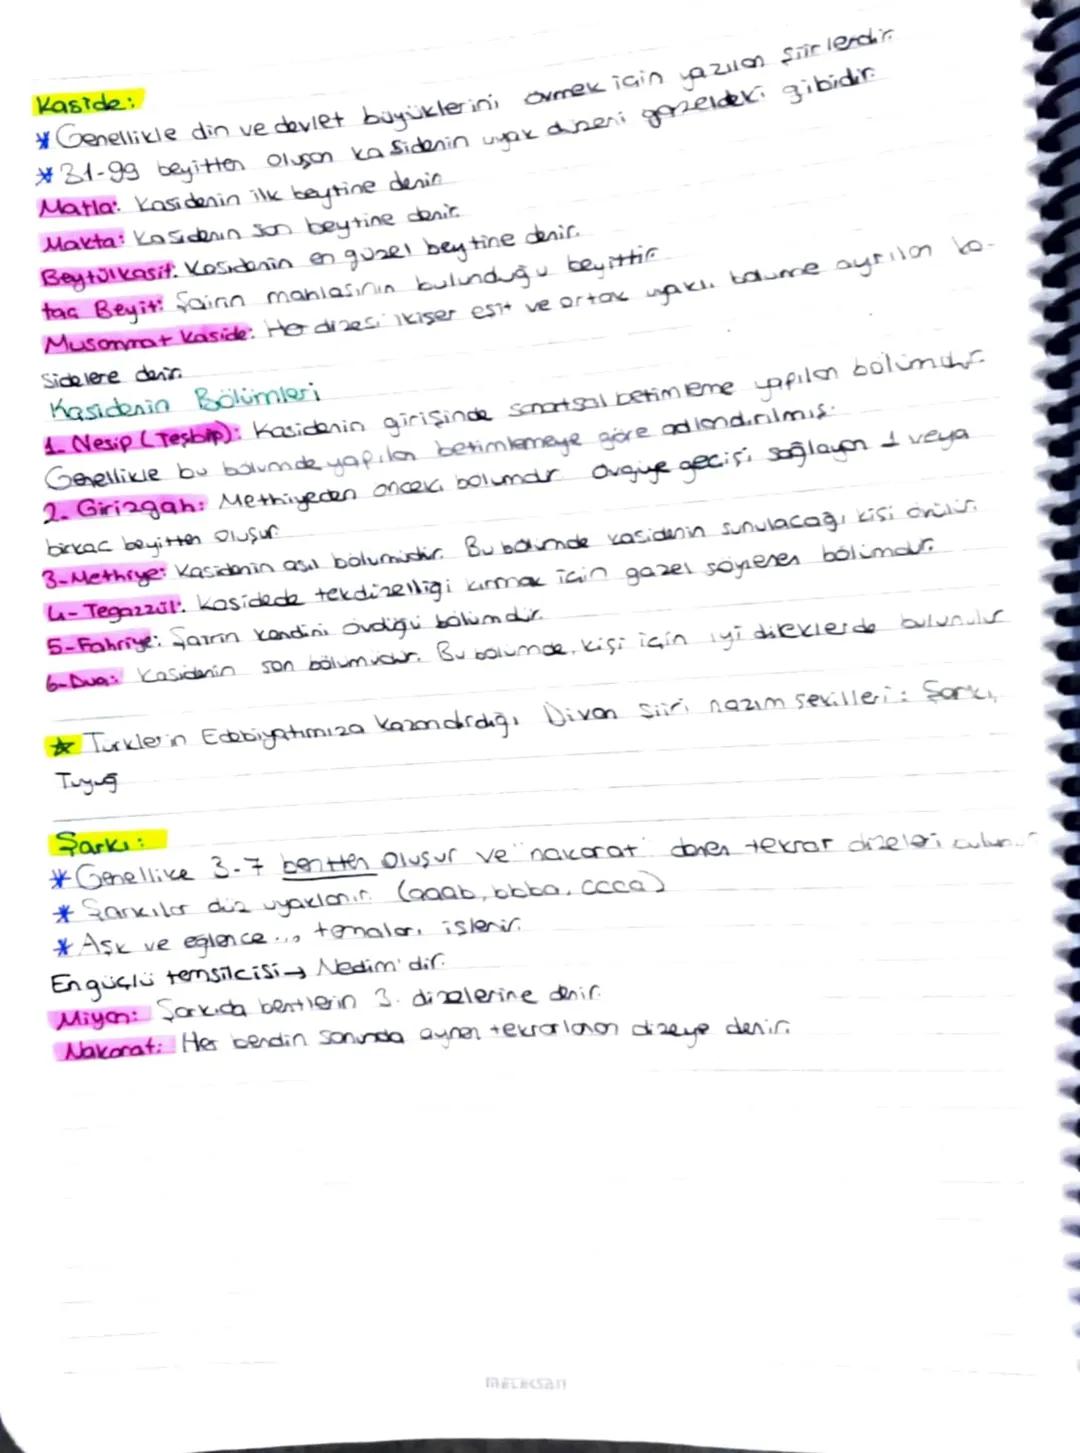 Kaside:
* Genellikle din ve devlet büyüklerini övmek için yazılan şiirlerdir.
* 31-99 beyitten oluşan kasidenin uyak düzeni gazeldeki gibidir.
Matla: Kasidenin ilk beytine denir
Makta: Kasidenin son beytine denir.
Beytülkasit: Kasidenin en güzel beytine denir.
taç Beyit: Şairin mahlasının bulunduğu beyittir.
Musammat Kaside: Her dizesi ikişer eşit ve ortak uyaklı bölüme ayrılan ka-
sidelere denir.
Kasidenin Bölümleri
1. Nesip (Teşbip): Kasidenin girişinde sanatsal betimleme yapılan bölümdür.
Genellikle bu bölümde yapılan betimlemeye göre adlandırılmış.
2. Girizgah: Methiyeden önceki bölümdür. Övgüye geçişi sağlayan 1 veya
birkaç beyitten oluşur.
3-Methiye: Kasidenin asıl bölümüdür. Bu bölümde kasidenin sunulacağı kişi övülür.
4- Tegazzül: Kasidede tekdizelliği kırmak için gazel söylenen bölümdür.
5-Fahriye: Şairin kendini övdüğü bölümdür.
6-Dua: Kasidenin son bölümüdür. Bu bölümde, kişi için iyi dileklerde bulunulur
★ Türklerin Edebiyatımıza kazandırdığı Divan şiiri nazım şekilleri: Şarkı,
Tuyuğ
Şarkı:
* Genellike 3-7 bentten oluşur ve "nakarat" denen tekrar dizeleri bulunur
* Şarkılar düz uyaklanır. (aaab, bbba, ccca)
* Aşk ve eğlence... temaları işlenir.
En güçlü temsilcisi → Nedim'dir.
Miyan: Şarkıda bentlerin 3. dizelerine denir.
Nakarat: Her bendin sonunda aynen tekrarlanan dizeye denir.